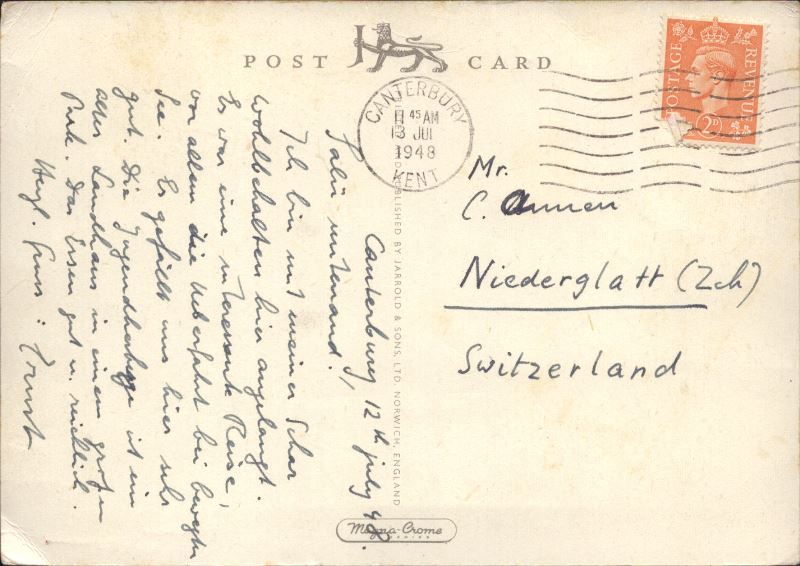 POST CARD
CANTERBURY
11 45 AM
13 JUL
1948
KENT
POSTAGE
REVENUE
2D
Mr.
C. Ammen
Niederglatt (Zch)
Switzerland
Canterbury, 12th july 48.
Salü mitenand!
Ich bin mit meiner Schar
wohlbehalten hier angelangt.
Es war eine interessante Reise,
vor allem die Ueberfahrt bei bewegter
See. Es gefällt uns hier sehr
gut. Die Jugendherberge ist ein
altes Landhaus in einem grossen
Park. Das Essen gut u. reichlich.
Herzl. Gruss: Ernst
PUBLISHED BY JARROLD & SONS, LTD. NORWICH, ENGLAND
Magna-Crome
SERIES